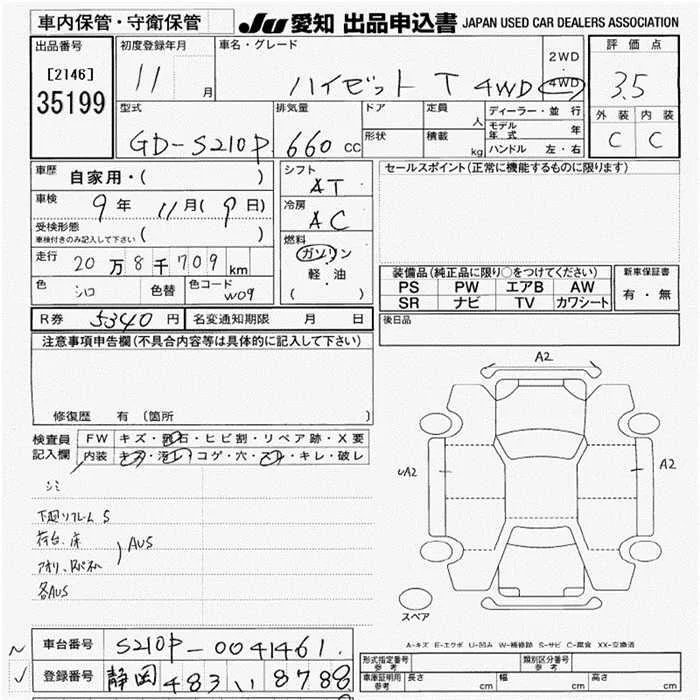 車内保管・守衛保管 JU 愛知 出品申込書 JAPAN USED CAR DEALERS ASSOCIATION
出品番号
[2146]
35199
初度登録年月
11 月
車名・グレード
ハイゼット T 4WD
2WD
・
4WD
評価点
3.5
外装 内装
C C
型式
GD-S210P
排気量
660 CC
ドア
形状
定員 人
積載 kg
ディーラー・並行
モデル年式 年
ハンドル 左・右
車歴 自家用・( )
車検 9年 11月(9日)
受検形態
車検付きのみ記入して下さい ( )
走行 20万8千709km
色 シロ 色替 色コード W09
シフト
AT
冷房
AC
燃料
ガソリン
軽・油
( )
セールスポイント(正常に機能するものに限ります)
装備品(純正品に限り○をつけてください)
PS PW エアB AW
SR ナビ TV カワシート
新車保証書
有・無
R券 5340円 名変通知期限 月 日
後日品
注意事項申告欄(不具合内容等は具体的に記入して下さい)
修復歴 有 (箇所 )
検査員
記入欄
FW キズ・飛石・ヒビ割・リペア跡・X要
内装 キズ・汚レ・コゲ・穴・スレ・キレ・破レ
シミ
下廻リフレームS
荷台、床
AUS
アオリ、Rパネル
各AUS
A2
UA2
A2
スペア
A-キズ E-エクボ U-凹み W-補修跡 S-サビ C-腐食 XX-交換済
車台番号 S210P-0041461
登録番号 静岡 483 い 8788
形式指定番号
参考
類別区分番号
参考
車庫証明用
参考
長さ cm 幅 cm 高さ cm